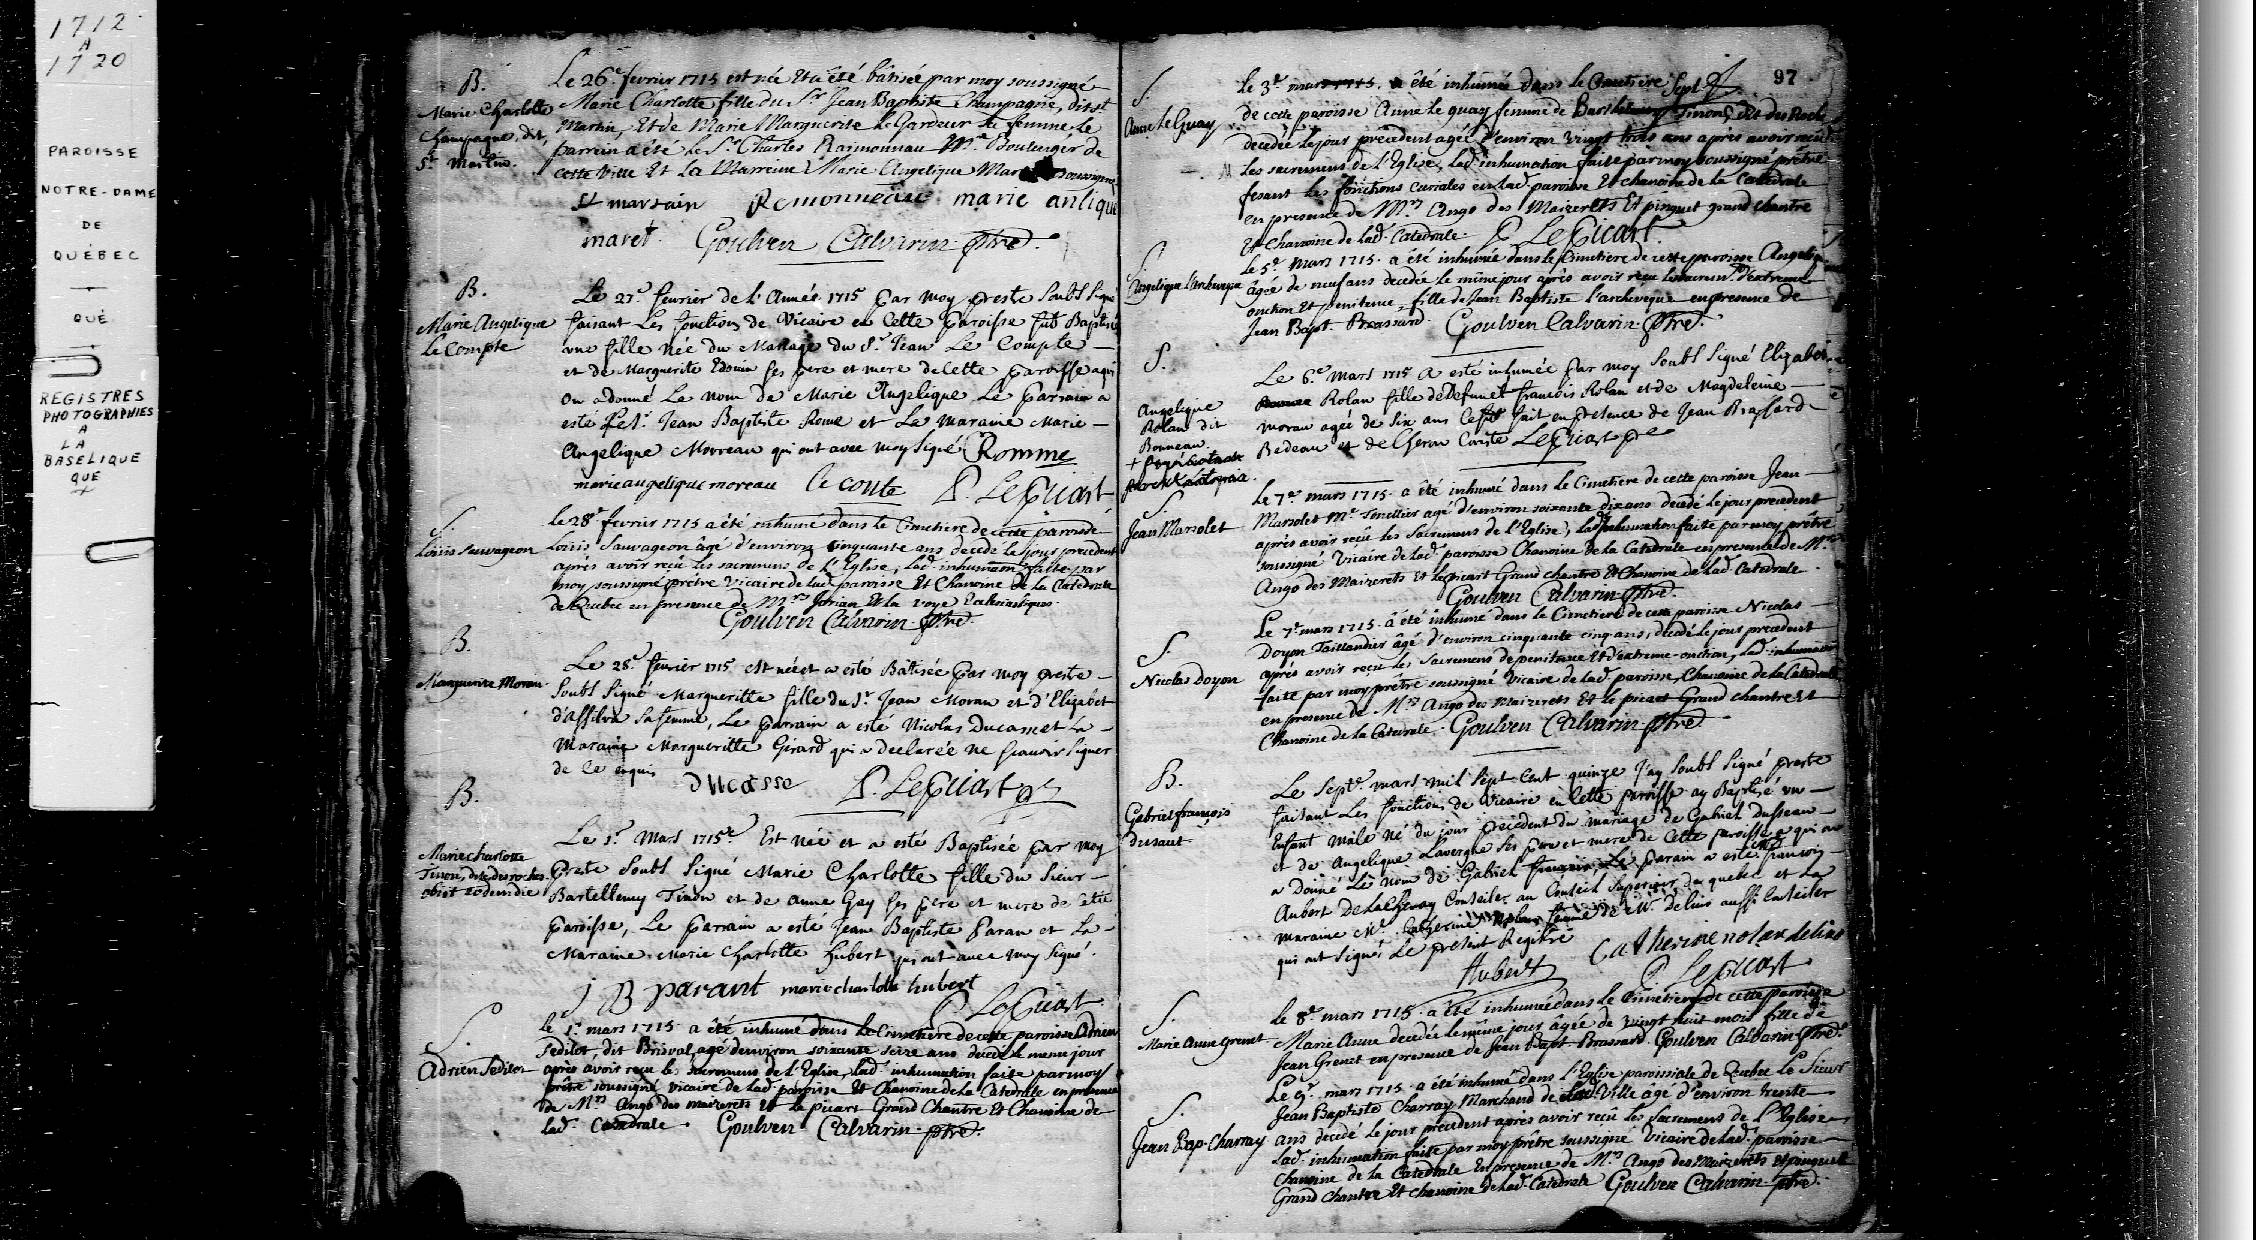 1712
A
1720
PAROISSE
NOTRE-DAME
DE
QUÉBEC
QUÉ
REGISTRES
PHOTOGRAPHIES
A
LA
BASELIQUE
QUE
B.
Marie Charlotte
Champagne dit
St Martin.
Le 26e fevrier 1715 est née et a été bâtisée par moy soussigné
Marie Charlotte fille du Sr Jean Baptiste Champagne, dit st
Martin, Et de Marie Marguerite le Gardeur sa femme le
parrein a été le Sr Charles Raimonneau Me Boulenger de
cette ville Et La Marreine Marie Angelique Mar soussignés
st martain Remonneau marie anlique
maret. Goulven Calvarin ptre.
B.
Marie Angelique
Le Compte
Le 27e fevrier de l'Année 1715 par moy preste soubs signé
faisant Les fonctions de Vicaire en Cette paroisse fut Baptisé
une fille née du Mariage du Sr Jean Le Compte
et de Marguerite ses pere et mere de cette paroisse a qui
on a donné Le nom de Marie Angelique Le parrain a
esté Le Sr Jean Baptiste Rome et La Maraine Marie
Angelique Moreau qui ont avec moy signé Romme
marie angelique moreau le conte P. LePicart
S.
Loüis Sauvageon
Le 28e fevrier 1715 a été inhumé dans le Cimetiere de cette paroisse
Loüis Sauvageon âgé d'environ cinquante ans decedé le jour precedent
après avoir reçu les sacremens de l'Eglise, lad. inhumation faite par
moy soussigné prêtre vicaire de lad. paroisse Et Chanoine de la Catedrale
de Quebec en presence de Mrs Jorian Et la voye Ecclesiastiques.
Goulven Calvarin ptre.
B.
Marguerite Moran
Le 28e fevrier 1715 est née et a esté Battisée par moy preste
soubs signé Margueritte fille du Sr Jean Moran et d'Elizabet
sa femme, Le parrain a esté Nicolas Ducas et La
Maraine Margueritte Girard qui a declarée ne scavoir signer
de ce enquis Ducasse P. LePicart ptr
B.
Marie charlotte
Tinon, dite desroches
obiit eodem die
Le 1r Mars 1715 Est née et a esté Baptisée par moy
preste soubs signé Marie Charlotte fille du Sieur
Bartellemy Tinon et de anne Gay ses pere et mere de cette
paroisse, Le parrain a esté Jean Baptiste Paran et La
Maraine Marie Charlotte hubert qui ont avec moy signé.
J B parant marie charlotte hubert
P LePicart
S.
Adrien Sedilot
Le 1r mars 1715 a été inhumé dans le Cimetiere de cette paroisse Adrien
Sedilot, dit Brisval agé d'environ soixante seize ans decedé le meme jour
après avoir reçu les sacremens de l'Eglise, lad. inhumation faite par moy
prêtre soussigné vicaire de lad. paroisse Et Chanoine de la Catedrale en presence
de Mrs Ango des maizerets Et le picart Grand Chantre Et Chanoine de
lad. Catedrale. Goulven Calvarin ptre.
97
S.
Anne Le Guay
Le 3e mars 1715. a été inhumée dans le Cimetiere
de cette paroisse Anne Le guay femme de Barthelemy Tinon, dit des Roches
decedée le jour precedent agée d'environ vingt trois ans après avoir recu
Les sacremens de l'Eglise, lad. inhumation faite par moy soussigné prêtre
fesant les fonctions curiales en lad. paroisse Et chanoine de la Catedrale
en presence de Mrs Ango des Maizerets Et pinguet grand chantre
Et Chanoine de lad. Catedrale. P LePicart.
S.
Angelique L'archeveque
Le 5e mars 1715. a été inhumée dans le Cimetiere de cette paroisse Angelique
âgée de neuf ans decedée le même jour après avoir reçu d'extreme
onction Et penitence, fille de Jean Baptiste l'archeveque en presence de
Jean Bapt Brassard. Goulven Calvarin ptre.
S.
Angelique
Rolan dit
Bonneau.
Le 6e mars 1715 a esté inhumée par moy soubs signé Elizabet
Rolan fille de Defunct francois Rolan et de Magdeleine
moran agée de six ans Le fait en presence de Jean Brassard
Bedeau et de LePicart pre
S.
Jean Marsolet
Le 7e mars 1715. a été inhumé dans le Cimetiere de cette paroisse Jean
Marsolet Me Tonellier agé d'environ soixante dix ans decedé le jour precedent
après avoir reçu les Sacremens de l'Eglise, lad. inhumation faite par moy prêtre
soussigné Vicaire de lad. paroisse Chanoine de la Catedrale en presence de Mrs
Ango des Maizerets Et Le picart Grand chantre Et Chanoine de lad. Catedrale.
Goulven Calvarin ptre.
S.
Nicolas Doyon
Le 7e mars 1715. a été inhumé dans le Cimetiere de cette paroisse Nicolas
Doyon Taillandier âgé d'environ cinquante cinq ans, decedé le jour precedent
après avoir reçu les Sacremens de penitence Et d'extreme-onction, lad. inhumation
faite par moy prêtre soussigné Vicaire de lad. paroisse, Chanoine de la Catedrale
en presence de Mrs Ango des Maizerets Et le picart Grand chantre Et
Chanoine de la Catedrale. Goulven Calvarin ptre.
B.
Gabriel françois
dusaut
Le Septe mars mil sept Cent quinze J'ay soubs signé preste
faisant Les fonctions de Vicaire en Cette paroisse ay Baptisé un
Enfant male né du jour precedent du mariage de Gabriel Dusseau
et de Angelique Lavergne ses pere et mere de Cette paroisse a qui on
a Donné Le nom de Gabriel françois Le parain a esté francois
Aubert De La Chenay Conseiler au Conseil Superieur de quebec et La
Maraine Me Catherine Nolan femme de Mr. delino aussi Conseiler
qui ont signé Le present Registre Catherine nolan delino
Aubert P LePicart
S.
Marie Anne Grenet
Le 8e mars 1715. a été inhumée dans le Cimetiere de cette paroisse
Marie Anne decedée le même jour âgée de vingt huit mois fille de
Jean Grenet en presence de Jean Bapt Brassard. Goulven Calvarin ptre.
S.
Jean Bap. Charray
Le 9e mars 1715. a été inhumé dans l'Eglise paroissiale de Quebec Le Sieur
Jean Baptiste Charray Marchand de cette ville âgé d'environ trente
ans decedé le jour precedent après avoir reçu les Sacremens de l'Eglise
Lad. inhumation faite par moy prêtre soussigné Vicaire de lad. paroisse
Chanoine de la Catedrale En presence de Mrs Ango des Maizerets et pinguet
Grand chantre Et chanoine de lad. Catedrale Goulven Calvarin ptre.